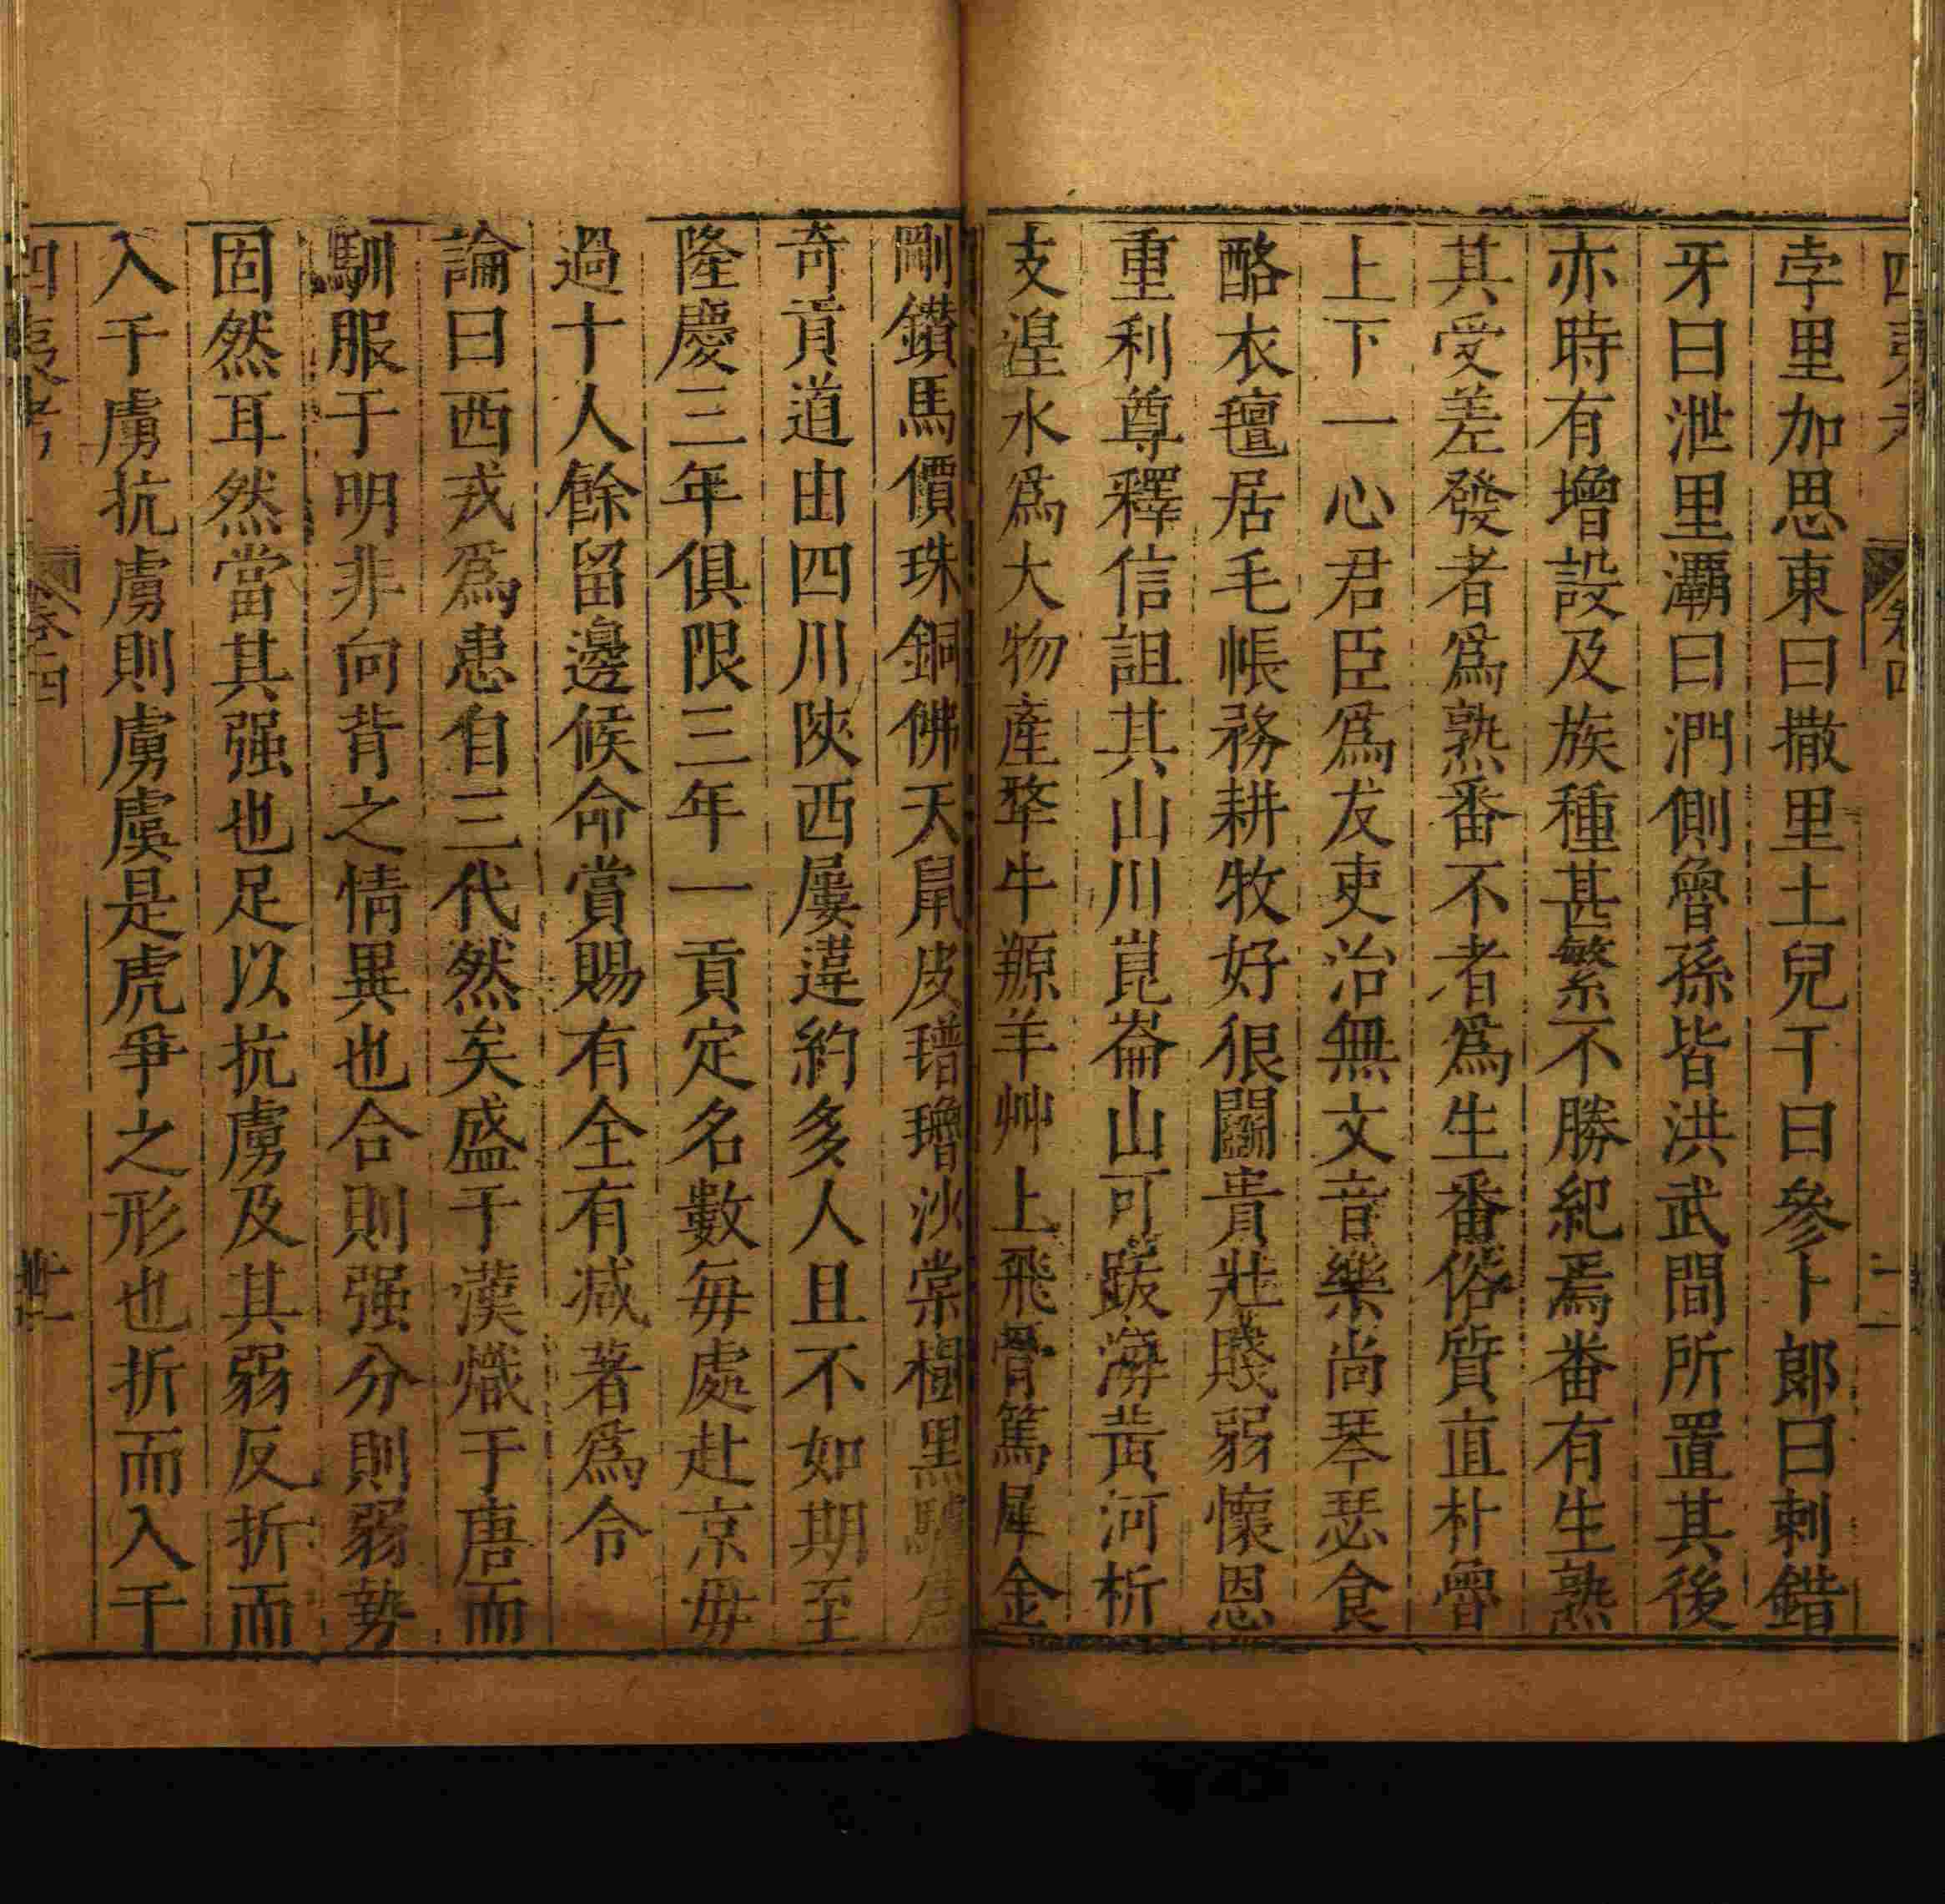 四夷考 卷四
孛里加思東曰撒里土兒干曰參卜郎曰剌錯
牙曰泄里灞曰潤側魯孫皆洪武間所置其後
亦時有增設及族種甚繁不勝紀焉番有生熟
其受差發者爲熟番不者爲生番俗質直朴魯
上下一心君臣爲友吏治無文音樂尚琴瑟食
酪衣氊居毛帳務耕牧好狠鬭貴壯賤弱懷恩
重利尊釋信詛其山川崑崙山可跋海黃河析
支湟水爲大物產犛牛羱羊艸上飛脊篤犀金
剛鑽馬價珠銅佛天鼠皮璔璯沙棠樹黑驢爲
奇貢道由四川陝西屢違約多人且不如期至
隆慶三年俱限三年一貢定名數每處赴京毋
過十人餘留邊候命賞賜有全有减著爲令
論曰西戎爲患自三代然矣盛于漢熾于唐而
馴服于明非向背之情異也合則强分則弱勢
固然耳然當其强也足以抗虜及其弱反折而
入于虜抗虜則虜虞是虎爭之形也折而入于
四夷考 卷四